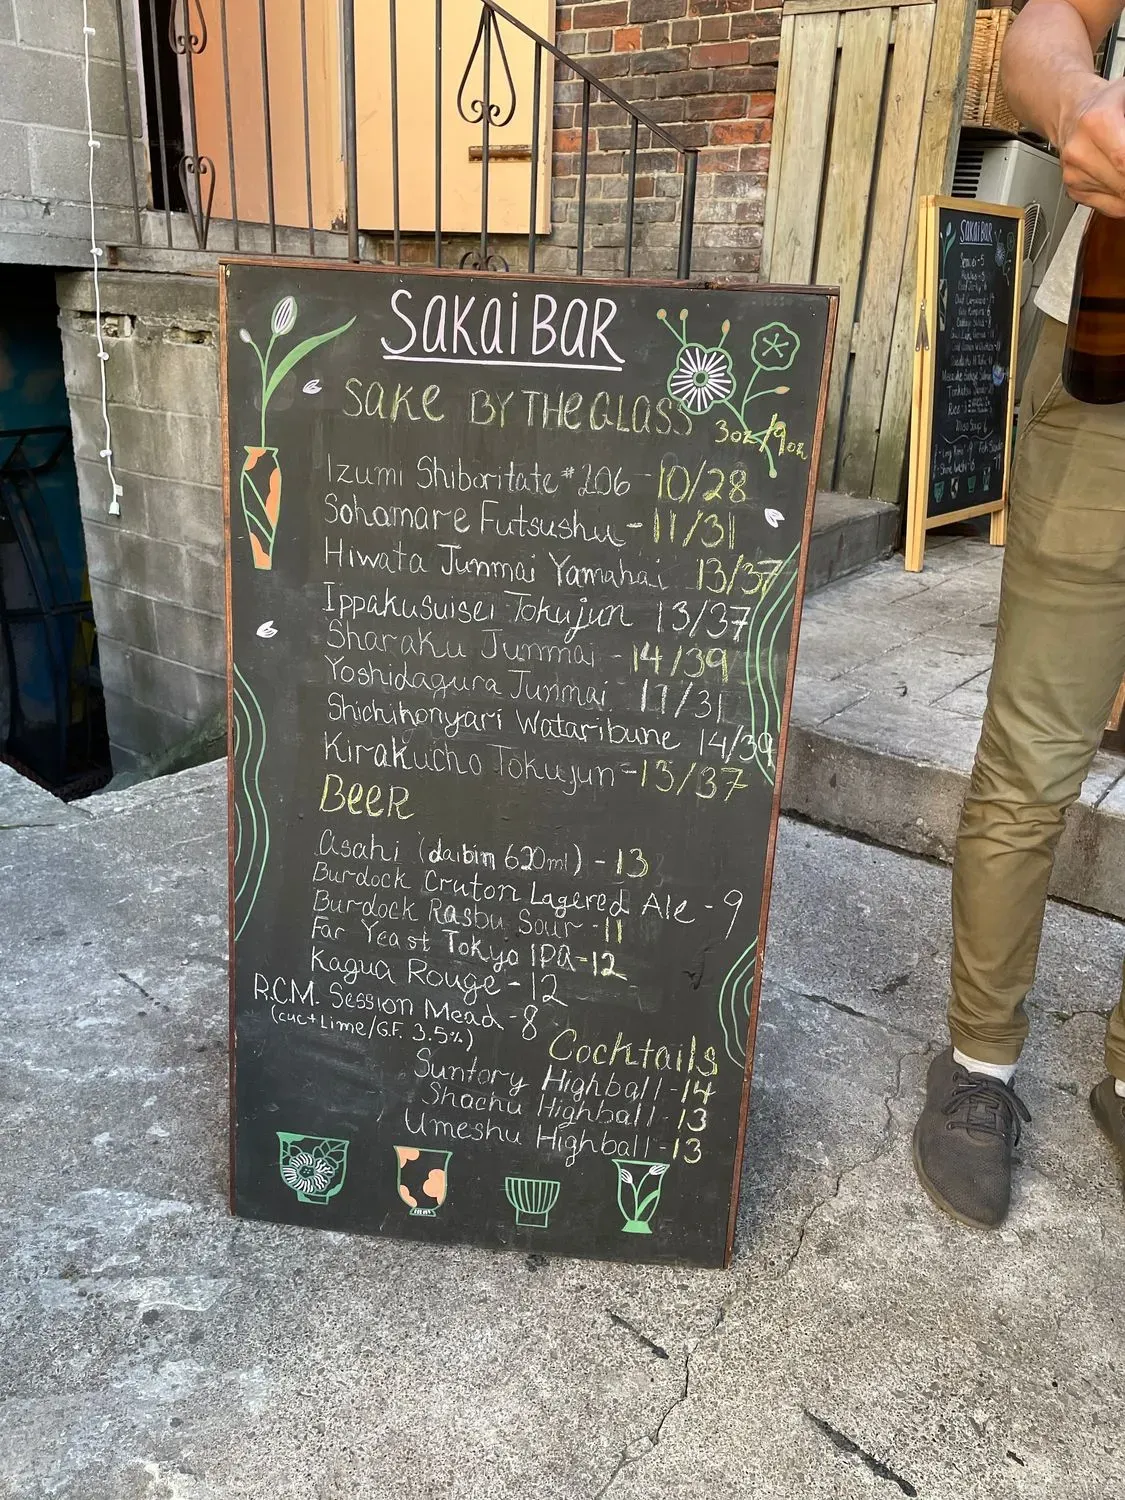 SAKAiBAR
SAKE BY THE GLASS 3oz/9oz
Izumi Shiboritate #206 - 10/28
Sohomare Futsushu - 11/31
Hiwata Junmai Yamahai 13/37
Ippakusuisei Tokujun 13/37
Sharaku Junmai - 14/39
Yoshidagura Junmai 11/31
Shichihonyari Wataribune 14/39
Kirakucho Tokujun - 13/37
BeeR
Asahi (daibin 620ml) - 13
Burdock Cruton Lagered Ale - 9
Burdock Rasbu Sour - 11
Far Yeast Tokyo IPA - 12
Kagua Rouge - 12
R.C.M. Session Mead - 8
(cuc + Lime/G.F. 3.5%)
Cocktails
Suntory Highball - 14
Shochu Highball - 13
Umeshu Highball - 13
SAKAiBAR
Miso Soup